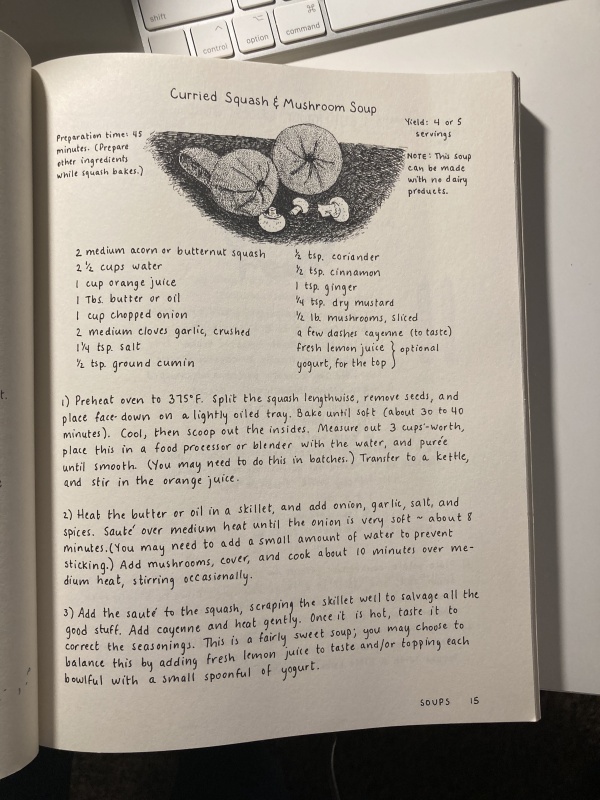 shift
control
option
command
Curried Squash & Mushroom Soup
Preparation time: 45
minutes. (Prepare
other ingredients
while squash bakes.)
Yield: 4 or 5
servings
NOTE: This soup
can be made
with no dairy
products.
2 medium acorn or butternut squash
2 ½ cups water
1 cup orange juice
1 Tbs. butter or oil
1 cup chopped onion
2 medium cloves garlic, crushed
1¼ tsp. salt
½ tsp. ground cumin
½ tsp. coriander
½ tsp. cinnamon
1 tsp. ginger
¼ tsp. dry mustard
½ lb. mushrooms, sliced
a few dashes cayenne (to taste)
fresh lemon juice } optional
yogurt, for the top
1) Preheat oven to 375°F. Split the squash lengthwise, remove seeds, and
place face-down on a lightly oiled tray. Bake until soft (about 30 to 40
minutes). Cool, then scoop out the insides. Measure out 3 cups'-worth,
place this in a food processor or blender with the water, and purée
until smooth. (You may need to do this in batches.) Transfer to a kettle,
and stir in the orange juice.
2) Heat the butter or oil in a skillet, and add onion, garlic, salt, and
spices. Sauté over medium heat until the onion is very soft ~ about 8
minutes. (You may need to add a small amount of water to prevent
sticking.) Add mushrooms, cover, and cook about 10 minutes over me-
dium heat, stirring occasionally.
3) Add the sauté to the squash, scraping the skillet well to salvage all the
good stuff. Add cayenne and heat gently. Once it is hot, taste it to
correct the seasonings. This is a fairly sweet soup; you may choose to
balance this by adding fresh lemon juice to taste and/or topping each
bowlful with a small spoonful of yogurt.
SOUPS 15